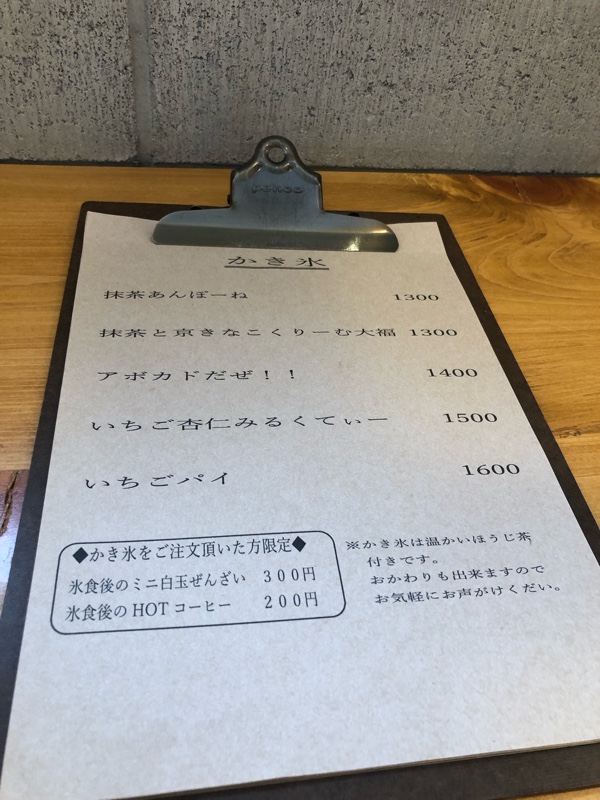 penco
かき氷
抹茶あんぼーね 1300
抹茶と京きなこくりーむ大福 1300
アボカドだぜ!! 1400
いちご杏仁みるくてぃー 1500
いちごパイ 1600
◆かき氷をご注文頂いた方限定◆
氷食後のミニ白玉ぜんざい 300円
氷食後のHOTコーヒー 200円
※かき氷は温かいほうじ茶
付きです。
おかわりも出来ますので
お気軽にお声がけくだい。